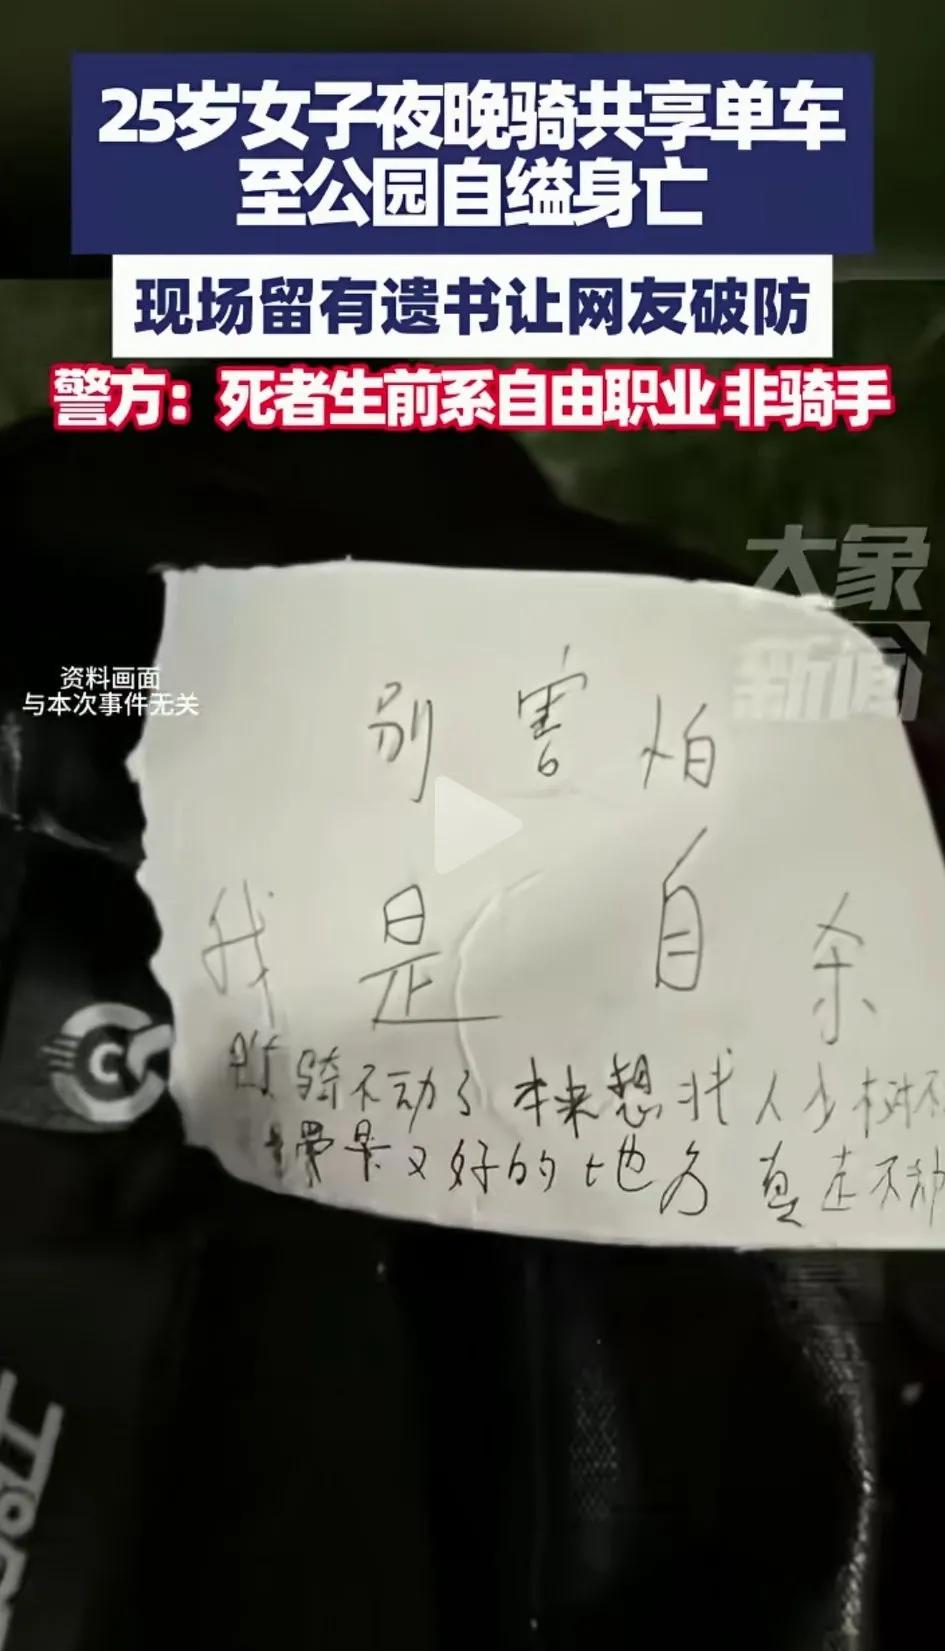 25岁女子夜晚骑共享单车
至公园自缢身亡
现场留有遗书让网友破防
警方：死者生前系自由职业 非骑手
大象
新闻
资料画面
与本次事件无关
别害怕
我是自杀
骑不动了 本来想找人少树不
又好的地方 真走不动